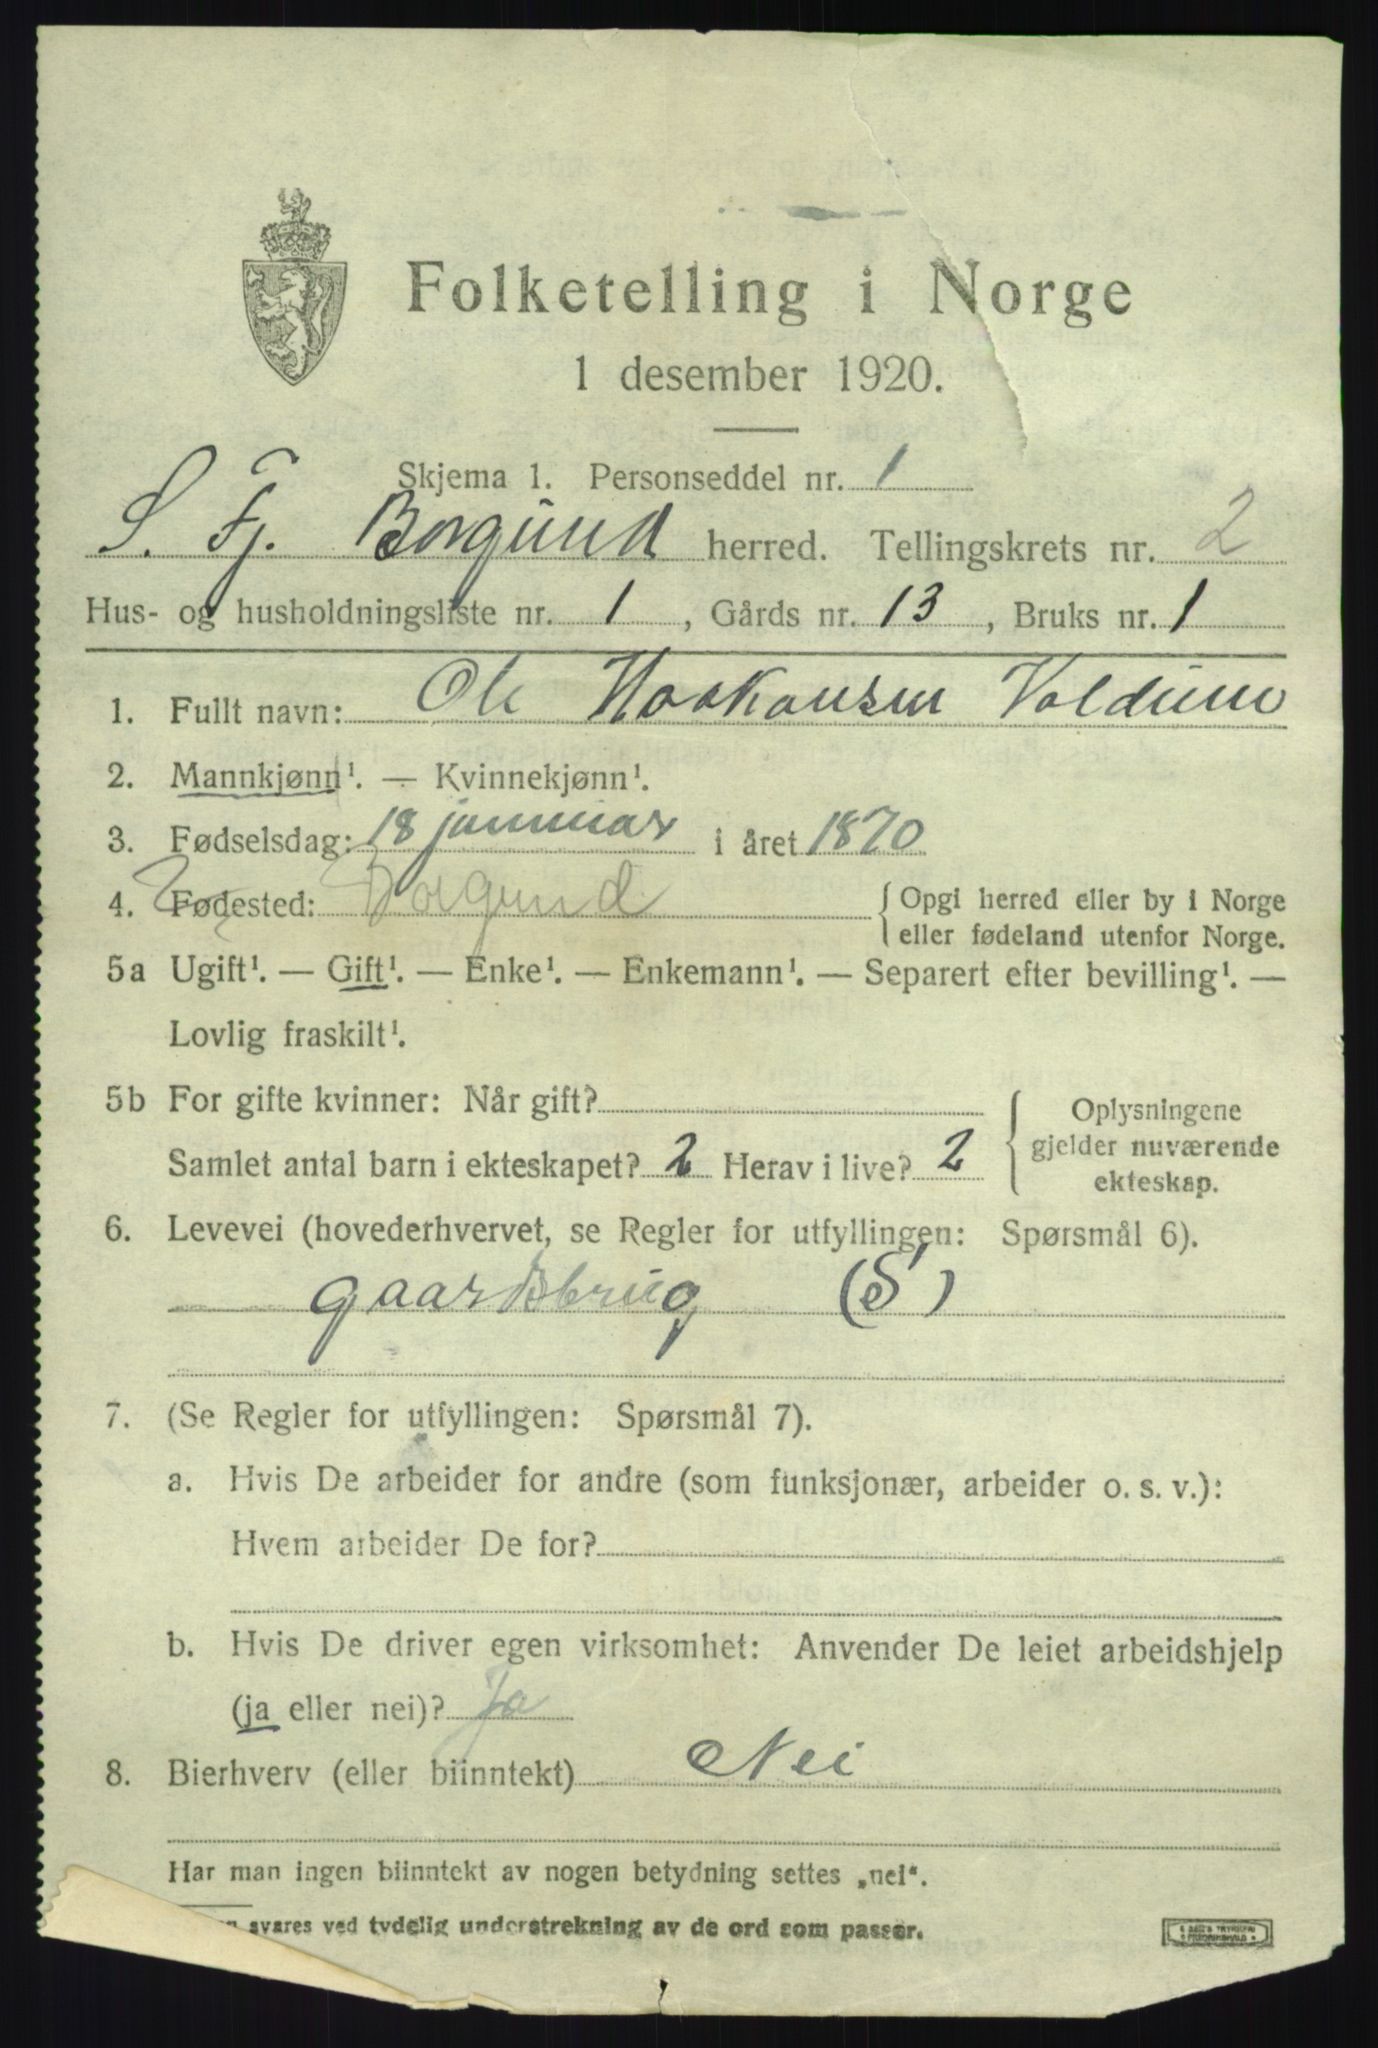 Folketelling i Norge
1 desember 1920.
Skjema 1. Personseddel nr. 1
S. Fj. Borgund herred. Tellingskrets nr. 2
Hus- og husholdningsliste nr. 1, Gårds nr. 13, Bruks nr. 1
1. Fullt navn: Ole Haakonsen Voldum
2. Mannkjønn¹. — Kvinnekjønn¹.
3. Fødselsdag: 18 januar i året 1870
4. Fødested: Borgund { Opgi herred eller by i Norge
eller fødeland utenfor Norge.
5a Ugift¹. — Gift¹. — Enke¹. — Enkemann¹. — Separert efter bevilling¹. —
Lovlig fraskilt¹.
5b For gifte kvinner: Når gift? { Oplysningene
gjelder nuværende
ekteskap.
Samlet antal barn i ekteskapet? 2 Herav i live? 2
6. Levevei (hovederhvervet, se Regler for utfyllingen: Spørsmål 6).
gaardsbrug (S)
7. (Se Regler for utfyllingen: Spørsmål 7).
a. Hvis De arbeider for andre (som funksjonær, arbeider o. s. v.):
Hvem arbeider De for?
b. Hvis De driver egen virksomhet: Anvender De leiet arbeidshjelp
(ja eller nei)? Ja
8. Bierhverv (eller biinntekt) Nei
Har man ingen biinntekt av nogen betydning settes „nei“.
svares ved tydelig understrekning av de ord som passer.